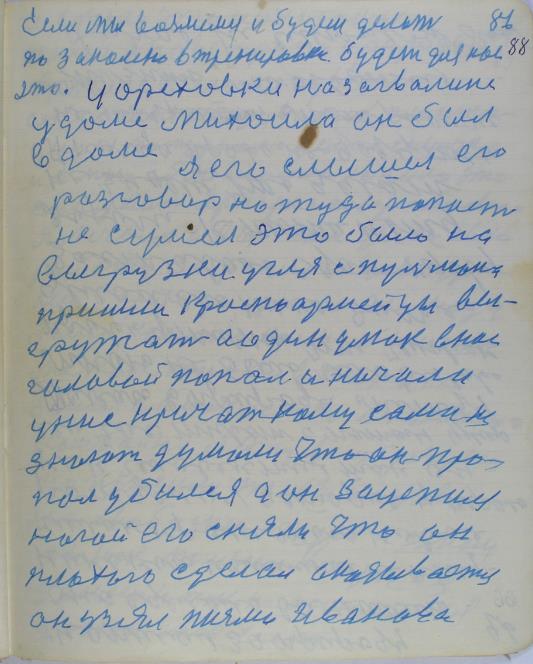 Если ты возмеш и будеш делат 86
по закалено в тренировки будет для нас 88
это. у ореховки на завалине
у доме михаила он был
в доме я его слышел его
розговор но туда попаст
не сумел это было на
выгрузки угля с пулмона
пришли красноармейцы вы-
гружат а один
головой попал и начали
кричат кому сами не
знают думали что он про-
пол убился а он зацепил
ногой его сняли что он
плохого сделал оказывается
он узял писмо Иванова